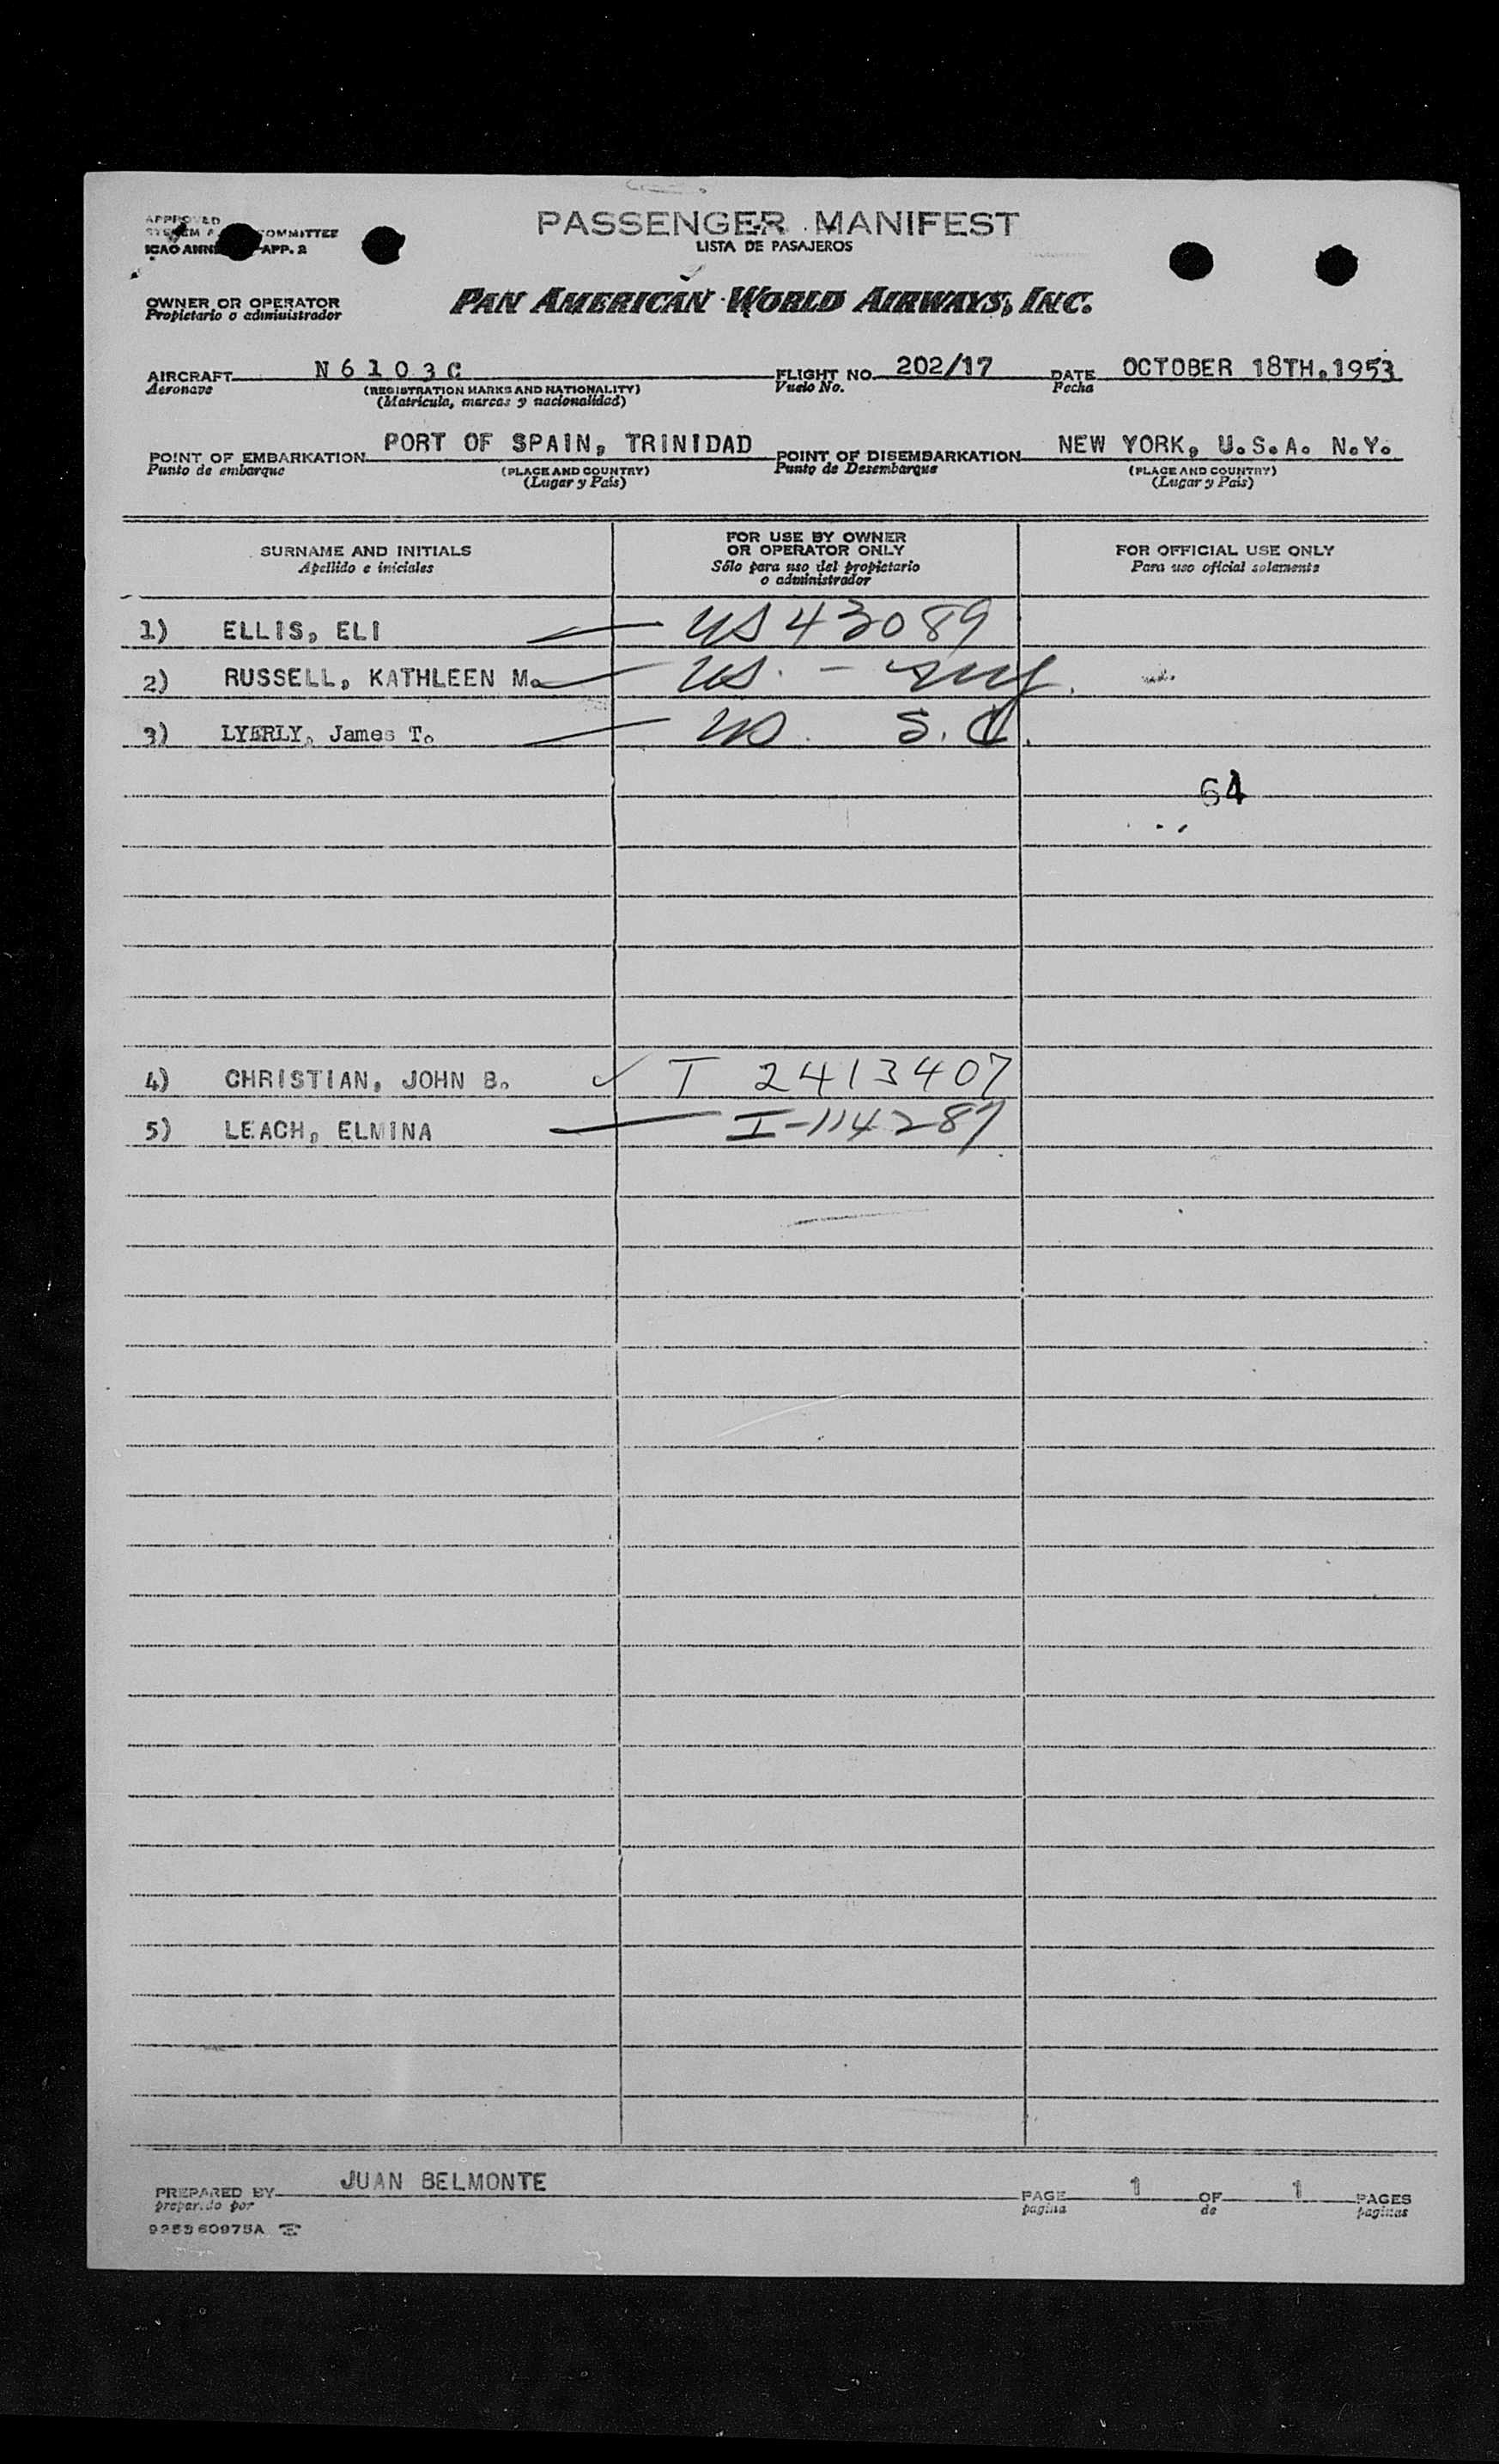 APPROVED
SYSTEM COMMITTEE
ICAO ANNEX APP. 2
PASSENGER MANIFEST
LISTA DE PASAJEROS
OWNER OR OPERATOR
Propietario o administrador
PAN AMERICAN WORLD AIRWAYS, INC.
AIRCRAFT N 6 1 0 3 C FLIGHT NO. 202/17 DATE OCTOBER 18TH.1953
Aeronave (REGISTRATION MARKS AND NATIONALITY) Vuelo No. Fecha
(Matricula, marcas y nacionalidad)
POINT OF EMBARKATION PORT OF SPAIN, TRINIDAD POINT OF DISEMBARKATION NEW YORK, U.S.A. N.Y.
Punto de embarque (PLACE AND COUNTRY) Punto de Desembarque (PLACE AND COUNTRY)
(Lugar y País) (Lugar y País)
SURNAME AND INITIALS FOR USE BY OWNER OR OPERATOR ONLY FOR OFFICIAL USE ONLY
Apellido e iniciales Sólo para uso del propietario o administrador Para uso oficial solamente
1) ELLIS, ELI US 43089
2) RUSSELL, KATHLEEN M. US. -
3) LYERLY, James T. US. S. C.
64
4) CHRISTIAN, JOHN B. I 2413407
5) LEACH, ELMINA I-114287
PREPARED BY JUAN BELMONTE PAGE 1 OF 1 PAGES
preparado por pagina de paginas